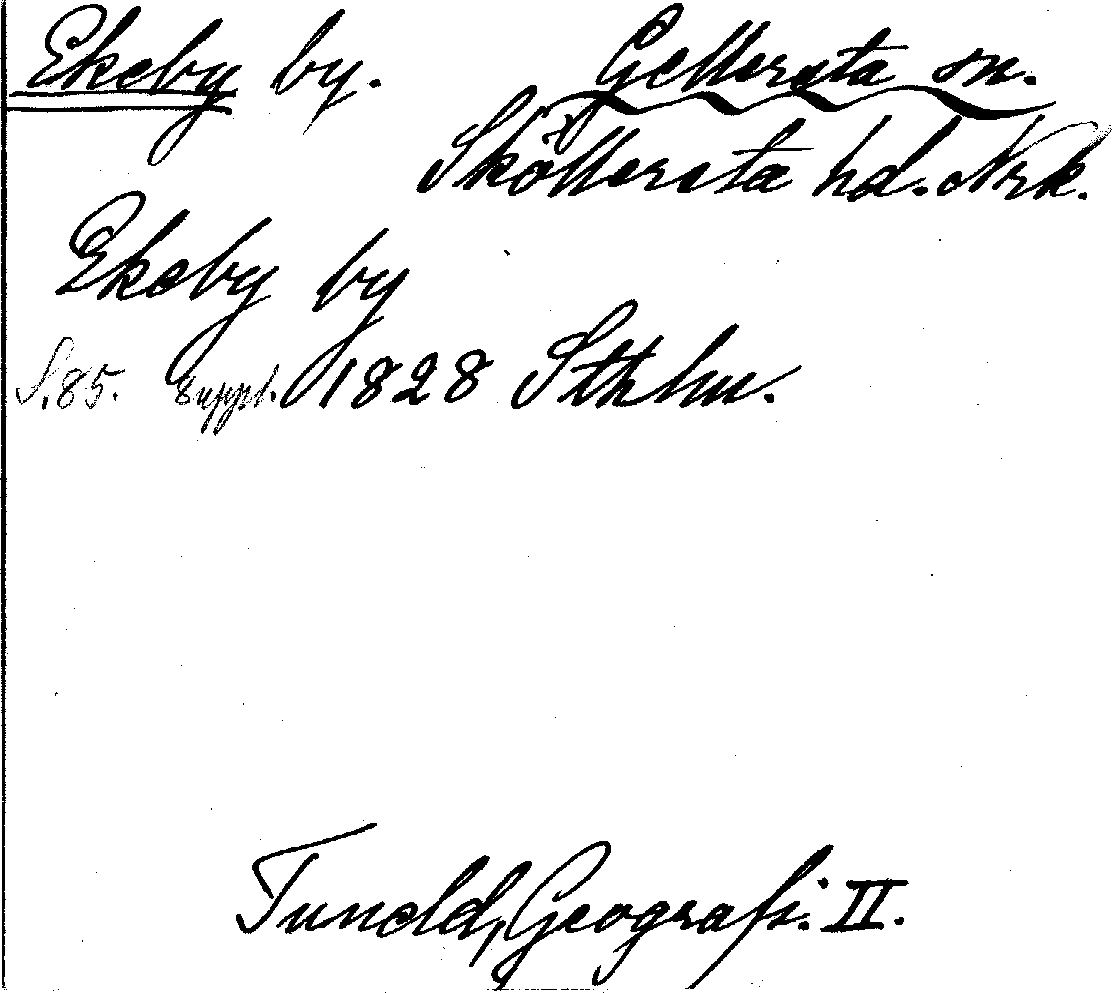 Ekeby by. Gellersta sn.
Sköllersta hd. Nrk.
Ekeby by
S. 85. Suppl. 1828 Sthlm.
Tuneld, Geografi. II.